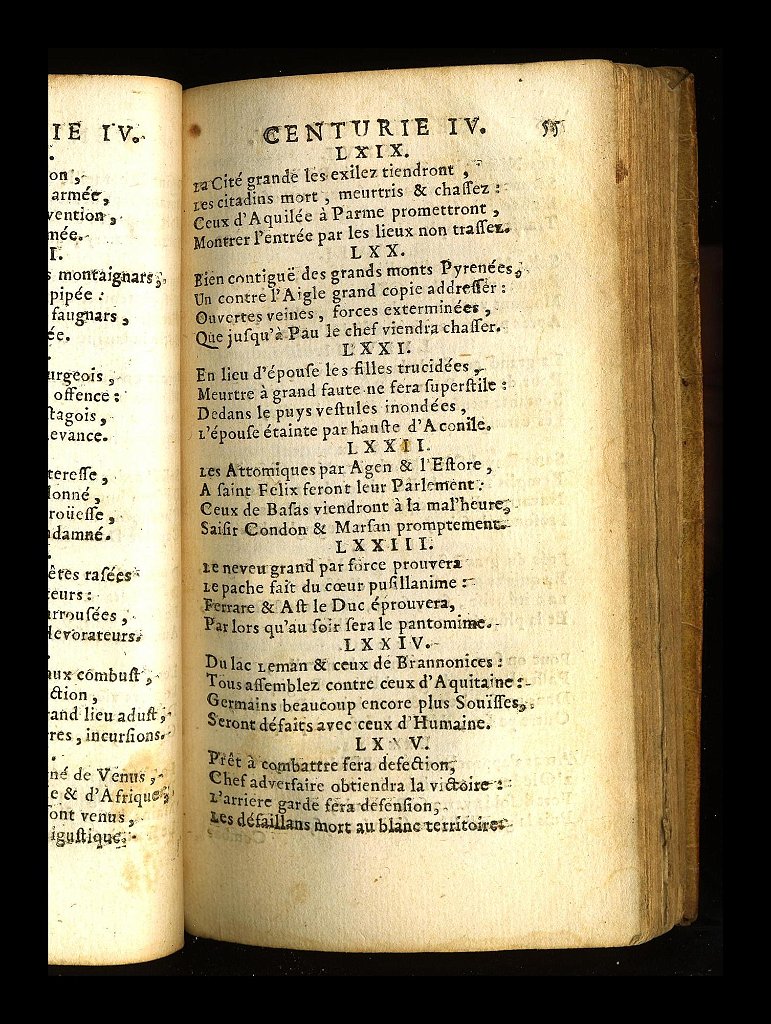 IE IV.
on,
armée,
vention,
mée.
I.
s montaignars,
pipée :
faugnars,
ée.
urgeois,
offence :
tagois,
evance.
tereſſe,
donné,
roüeſſe,
damné.
êtes raſées
teurs :
arrouſées,
devorateurs.
aux combuſt,
ction,
rand lieu aduſt,
res, incurſions.
né de Venus,
e & d'Afrique,
ont venus,
iguſtique.
CENTURIE IV. 55
LXIX.
La Cité grande les exilez tiendront,
Les citadins mort, meurtris & chaſſez :
Ceux d'Aquilée à Parme promettront,
Montrer l'entrée par les lieux non traſſez.
LXX.
Bien contiguë des grands monts Pyrenées,
Un contre l'Aigle grand copie addreſſer :
Ouvertes veines, forces exterminées,
Que juſqu'à Pau le chef viendra chaſſer.
LXXI.
En lieu d'épouſe les filles trucidées,
Meurtre à grand faute ne ſera ſuperſtile :
Dedans le puys veſtules inondées,
L'épouſe étainte par hauſte d'Aconile.
LXXII.
Les Attomiques par Agen & l'Eſtore,
A ſaint Felix feront leur Parlement :
Ceux de Baſas viendront à la mal'heure,
Saiſir Condon & Marſan promptement.
LXXIII.
Le neveu grand par force prouvera
Le pache fait du cœur puſillanime :
Ferrare & Aſt le Duc éprouvera,
Par lors qu'au ſoir ſera le pantomime.
LXXIV.
Du lac Leman & ceux de Brannonices :
Tous aſſemblez contre ceux d'Aquitaine :
Germains beaucoup encore plus Souïſſes,
Seront défaits avec ceux d'Humaine.
LXXV.
Prêt à combattre ſera defection,
Chef adverſaire obtiendra la victoire :
L'arriere garde ſera défenſion,
Les défaillans mort au blanc territoire.